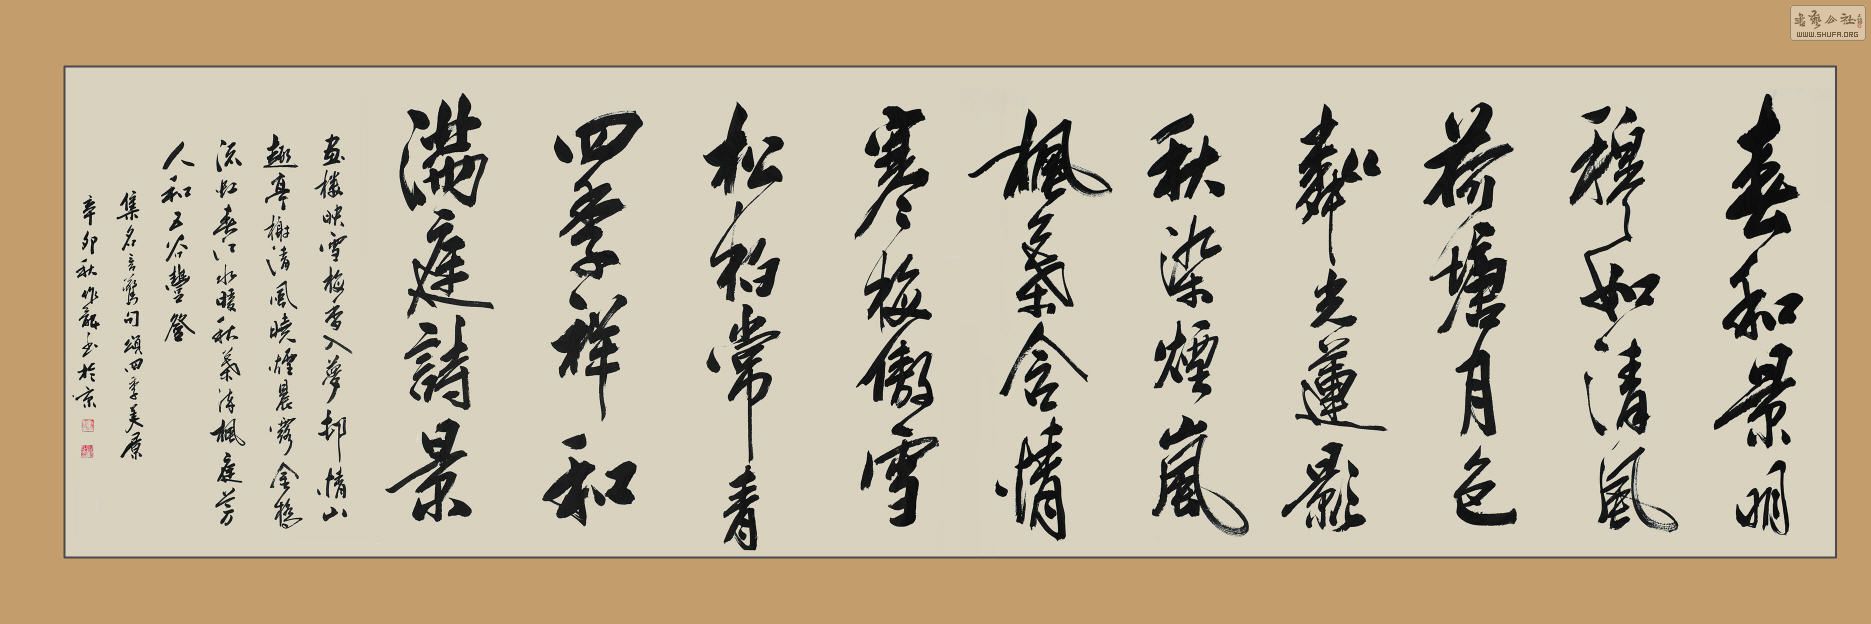 春和景明
穆如清風
荷塘月色
粼光蓮影
秋染煙嵐
楓葉含情
寒梅傲雪
松柏常青
四季祥和
滿庭詩景
畫樓映雪梅香入夢邨情山
趣亭榭清風曉煙晨露金橋
流虹春江水暖秋葉落楓庭芳
人和五谷豐登
集名言舊句頌四季美景
辛卯秋作龍書於京
WWW.SHUFA.ORG